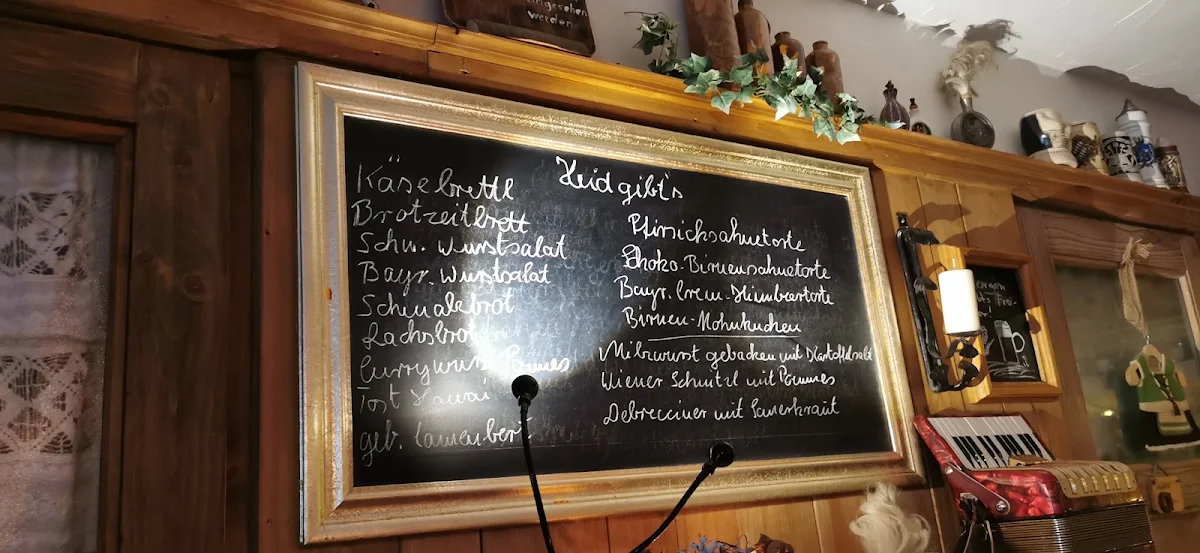 angesehen
werden
Heid gibt's
Käsebrettl
Brotzeitbrett
Schw. Wurstsalat
Bayr. Wurstsalat
Schmalzbrot
Lachsbrot
Currywurst Pommes
Tost Hawai
geb. Camenbert
Pfirsichsahnetorte
Schoko-Birnensahnetorte
Bayr. Crem-Himbeertorte
Birnen-Mohnkuchen
Milzwurst gebacken mit Kartoffelsalat
Wiener Schnitzl mit Pommes
Debrecziner mit Sauerkraut